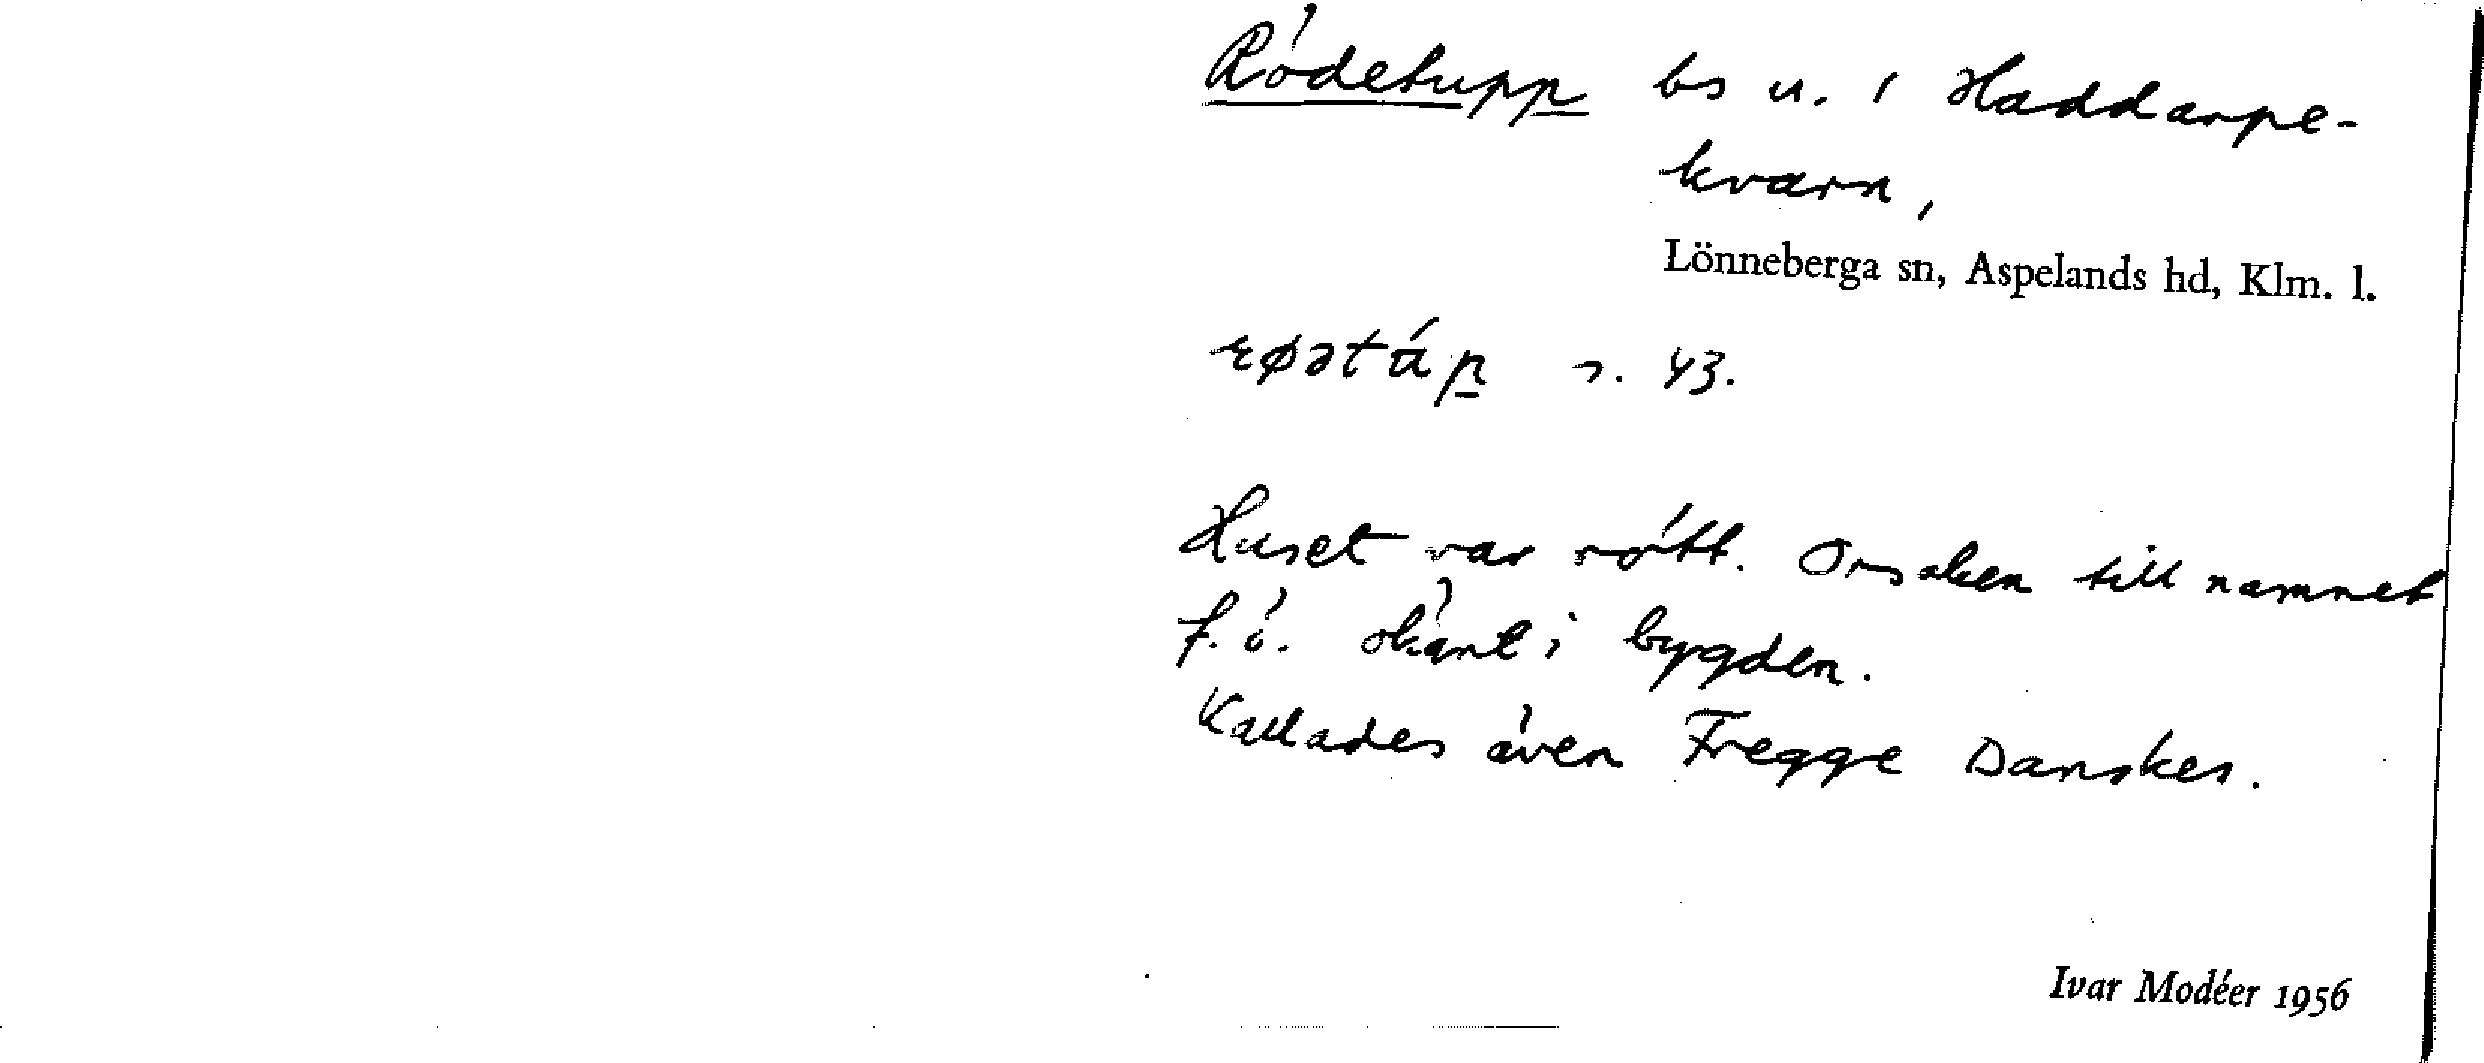 Rödetupp bs u. i Haddarpe-
kvarn,
Lönneberga sn, Aspelands hd, Klm. l.
s. 43.
Huset var rött. Orsaken till namnet
f. ö. okänt i bygden.
Kallades även Fregge Danskes.
Ivar Modéer 1956